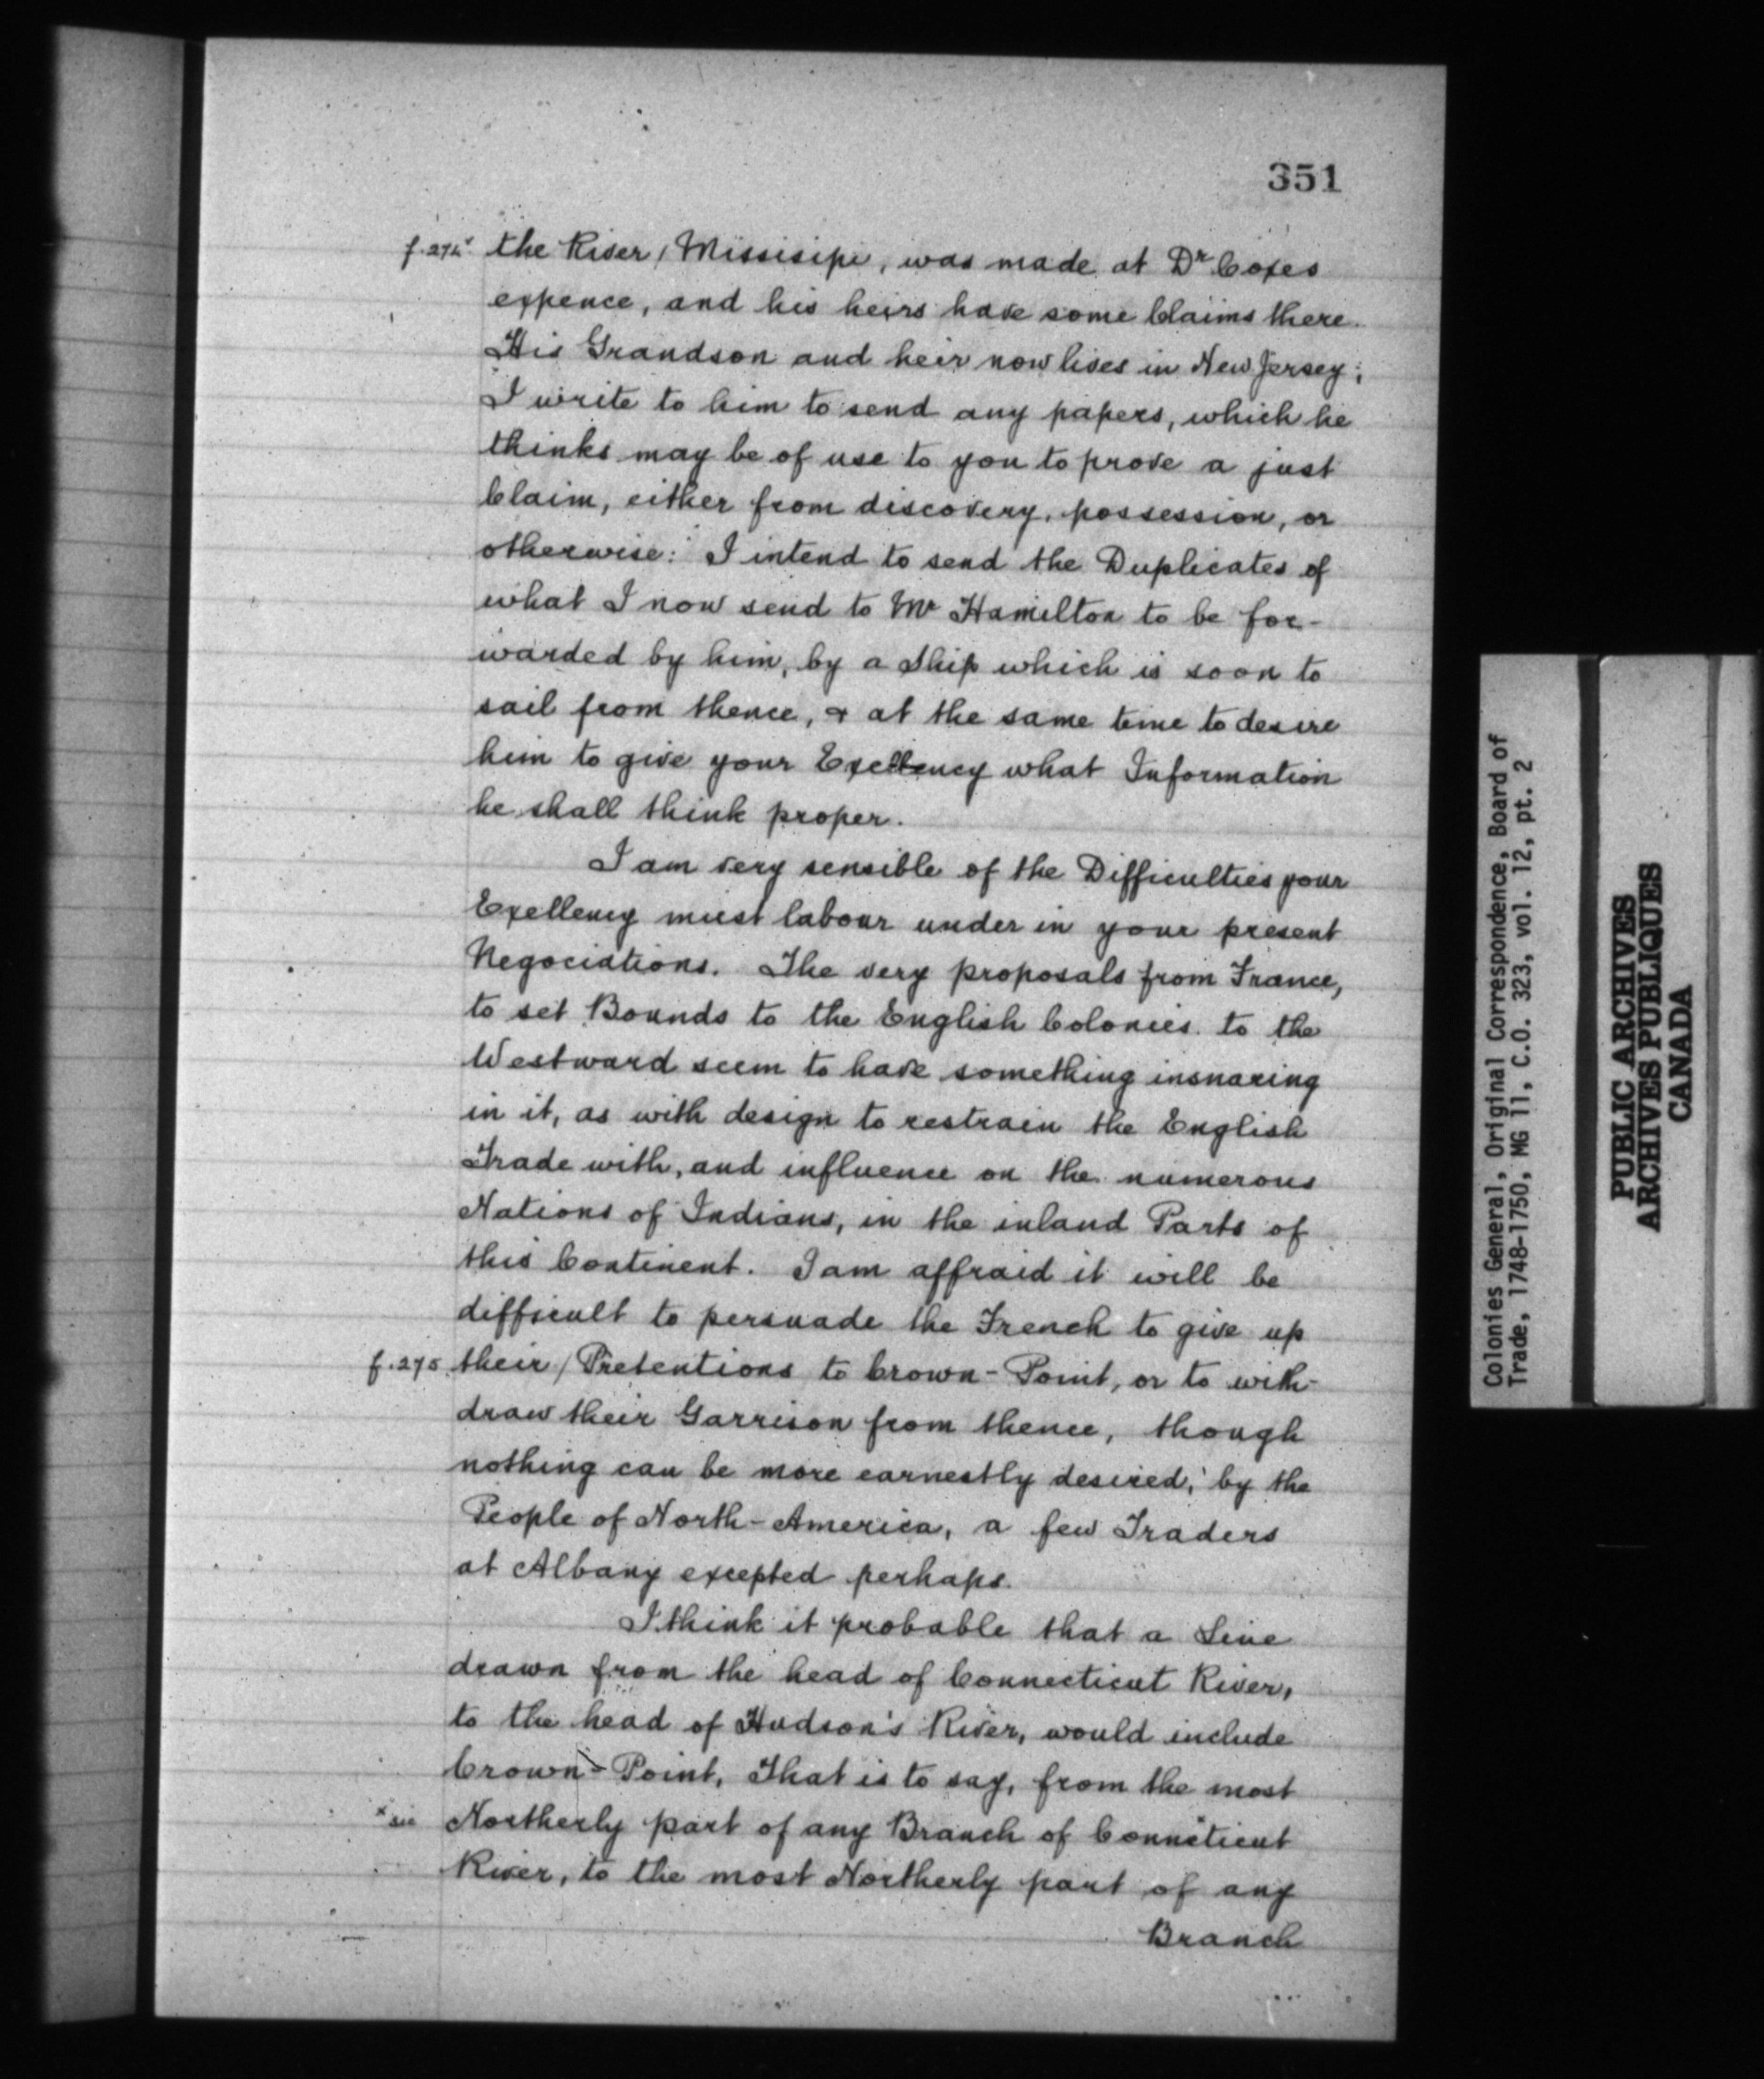 351
f.274v the River / Missisipi, was made at Dr Coxes
expence, and his heirs have some Claims there.
His Grandson and heir now lives in New Jersey;
I write to him to send any papers, which he
thinks may be of use to you to prove a just
Claim, either from discovery, possession, or
otherwise: I intend to send the Duplicates of
what I now send to Mr Hamilton to be for-
warded by him, by a Ship which is soon to
sail from thence, & at the same time to desire
him to give your Exellency what Information
he shall think proper.
I am very sensible of the Difficulties your
Exellency must labour under in your present
Negociations. The very proposals from France,
to set Bounds to the English Colonies to the
Westward seem to have something insnaring
in it, as with design to restrain the English
Trade with, and influence on the numerous
Nations of Indians, in the inland Parts of
this Continent. I am affraid it will be
difficult to persuade the French to give up
f.275 their / Pretentions to Crown-Point, or to with-
draw their Garrison from thence, though
nothing can be more earnestly desired, by the
People of North-America, a few Traders
at Albany excepted perhaps.
I think it probable that a Line
drawn from the head of Connecticut River,
to the head of Hudson's River, would include
Crown-Point, That is to say, from the most
x sic Northerly part of any Branch of Conneticut
River, to the most Northerly part of any
Branch
Colonies General, Original Correspondence, Board of
Trade, 1748-1750, MG 11, C.O. 323, vol. 12, pt. 2
PUBLIC ARCHIVES
ARCHIVES PUBLIQUES
CANADA